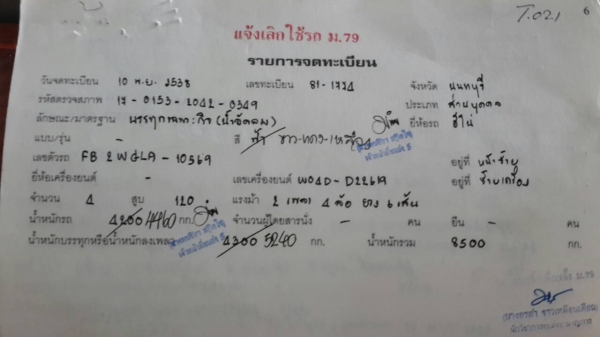 T.021 6
แจ้งเลิกใช้รถ ม.79
รายการจดทะเบียน
วันจดทะเบียน 10 พ.ย. 2538 เลขทะเบียน 81- จังหวัด นนทบุรี
รหัสตรวจสภาพ 0153-2042-0349 ประเภท ส่วนบุคคล
ลักษณะ/มาตรฐาน บรรทุก (น้ำอัดลม) ยี่ห้อรถ ฮีโน่
แบบ/รุ่น - สี ฟ้า ขาว-แดง-เหลือง
เลขตัวรถ FB 2WGLA-10569 อยู่ที่ หน้าซ้าย
ยี่ห้อเครื่องยนต์ - เลขเครื่องยนต์ WO4D-D22619 อยู่ที่ ซ้ายเครื่อง
จำนวน 4 สูบ 120 แรงม้า 2 เพลา 4 ล้อ ยาง 6 เส้น
น้ำหนักรถ 4200 4460 กก. จำนวนผู้โดยสารนั่ง - คน ยืน - คน
น้ำหนักบรรทุกหรือน้ำหนักลงเพลา 4300 5240 กก. น้ำหนักรวม 8500 กก.
ม.79